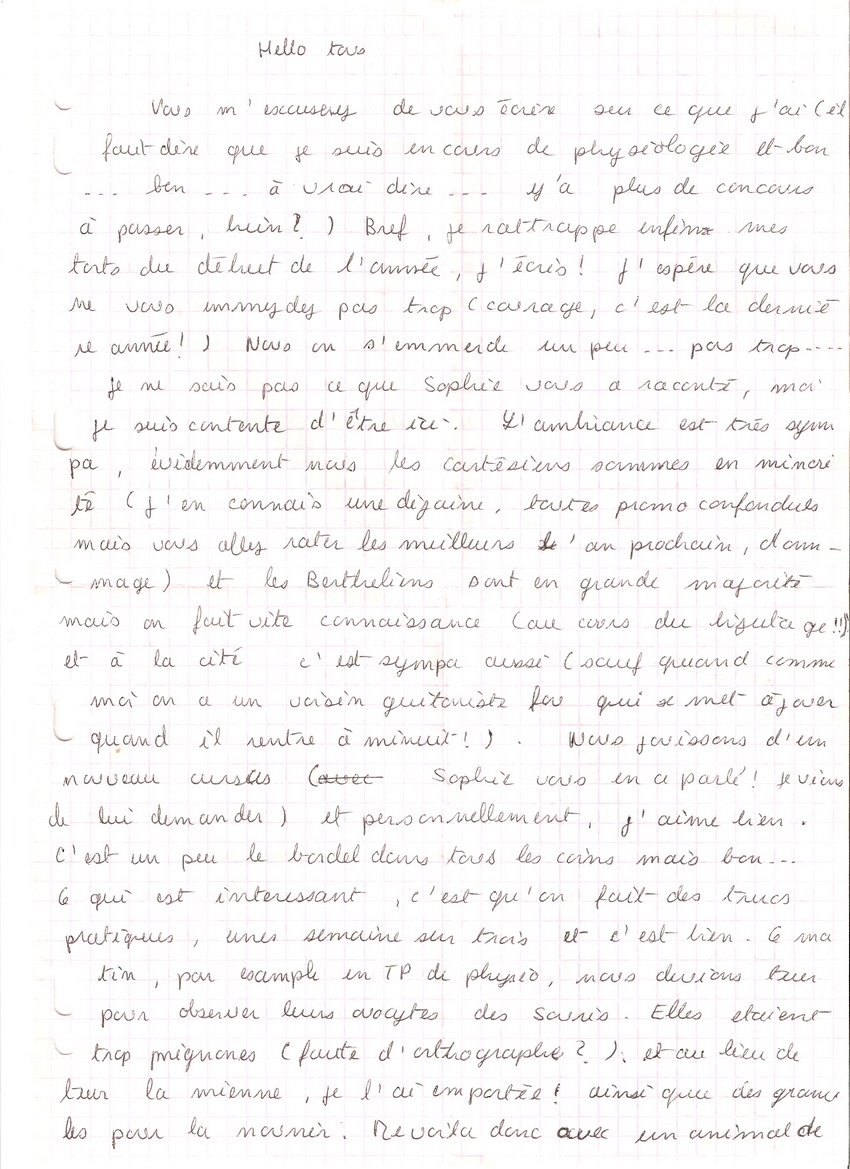 Hello tous
Vous m'excuserez de vous écrire sur ce que j'ai (il
faut dire que je suis en cours de physiologie et bon
... ben ... à vrai dire ... y'a plus de concours
à passer, hein? ) Bref, je rattrappe enfin mes
torts du début de l'année, j'écris! J'espère que vous
ne vous emmerdez pas trop (courage, c'est la derniè
re année!) Nous on s'emmerde un peu ... pas trop....
Je ne sais pas ce que Sophie vous a raconté, moi
je suis contente d'être ici. L'ambiance est très sym
pa, évidemment nous les cartésiens sommes en minori
té (j'en connais une dizaine, toutes promo confondues
mais vous allez rater les meilleurs l'an prochain, dom-
mage) et les Bertheliens sont en grande majorité
mais on fait vite connaissance (au cours du bizuta ge!!)
et à la cité c'est sympa aussi (sauf quand comme
moi on a un voisin guitariste fou qui se met à jouer
quand il rentre à minuit!). Nous jouissons d'un
nouveau cursus (avec Sophie vous en a parlé! je viens
de lui demander) et personnellement, j'aime bien.
C'est un peu le bordel dans tous les coins mais bon...
Ce qui est interessant, c'est qu'on fait des trucs
pratiques, une semaine sur trois et c'est bien. Ce ma
tin, par exemple en TP de physio, nous devions tuer
pour observer leurs ovocytes des souris. Elles etaient
trop mignones (faute d'orthographe?). et au lieu de
tuer la mienne, je l'ai emportée! ainsi que des granu
lés pour la nourrir. Me voila donc avec un animal de